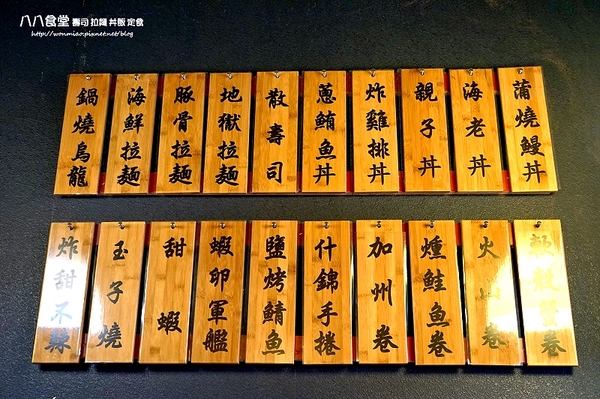 八八食堂 壽司 拉麵 丼飯 定食
http://wonmiao.pixnet.net/blog
鍋燒烏龍
海鮮拉麵
豚骨拉麵
地獄拉麵
散壽司
蔥鮪魚丼
炸雞排丼
親子丼
海老丼
蒲燒鰻丼
炸甜不辣
玉子燒
甜蝦
蝦卵軍艦
鹽烤鯖魚
什錦手捲
加州卷
燻鮭魚卷
火山卷
卷